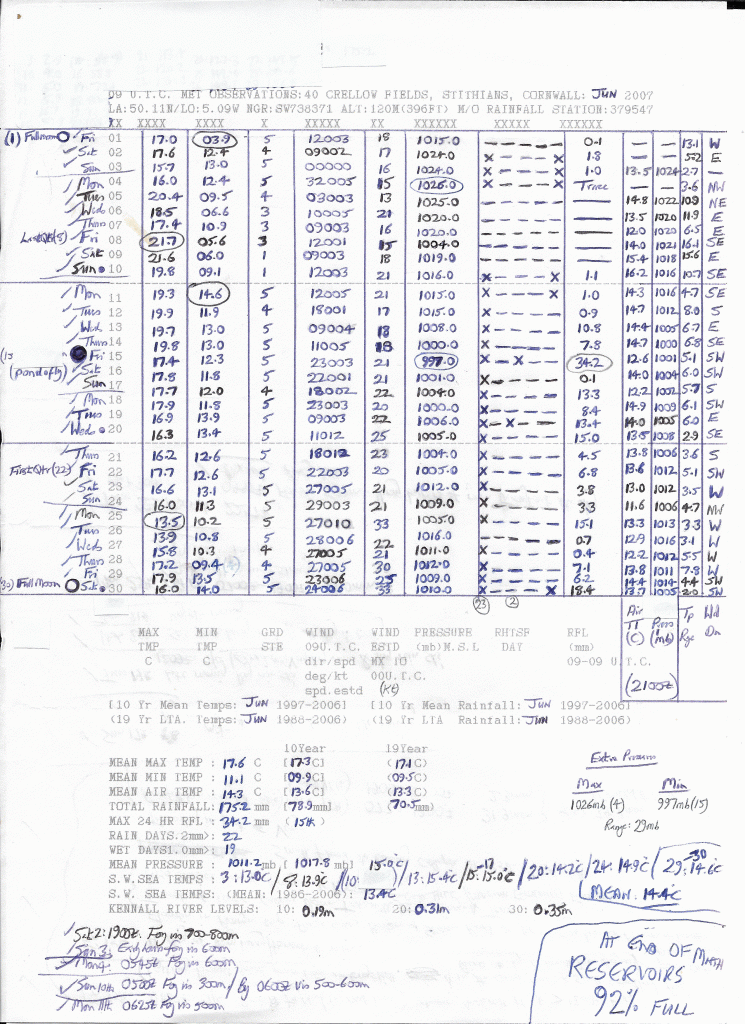 09 U.T.C. MET OBSERVATIONS:40 CRELLOW FIELDS, STITHIANS, CORNWALL: JUN 2007
LA:50.11N/LO:5.09W NGR:SW738371 ALT:120M(396FT) M/O RAINFALL STATION:379547
XX XXXX XXXX X XXXXX XX XXXXXX XXXXX XXXXXX
(1) Full moon Fri 01 17.0 03.9 5 12003 18 1015.0 ----- 0.1 — — 13.1 W
Sat 02 17.6 12.4 4 09002 17 1024.0 X---X 1.8 — — 5.2 E
Sun 03 15.7 13.0 5 00000 16 1024.0 X---X 1.0 13.5 1024 2.7 —
Mon 04 16.0 12.4 5 32005 15 1026.0 X---X Trace — — 3.6 NW
Tues 05 20.4 09.5 4 03003 13 1025.0 ----- 14.8 1022 10.9 NE
Wed 06 18.5 06.6 3 10005 21 1020.0 ----- 13.5 1020 11.9 E
Thurs 07 17.4 10.9 3 09003 16 1020.0 ----- 12.0 1020 6.5 E
Last Qtr(8) Fri 08 21.7 05.6 3 12001 15 1004.0 ----- 14.0 1021 16.1 SE
Sat 09 21.6 06.0 1 09003 18 1019.0 ----- 15.4 1018 15.6 E
Sun 10 19.8 09.1 1 12003 21 1016.0 X---X 1.1 16.2 1016 10.7 SE
Mon 11 19.3 14.6 5 12005 21 1015.0 X---X 1.0 14.3 1016 4.7 SE
Tues 12 19.9 11.9 4 18001 17 1015.0 X---- 0.9 14.7 1012 8.0 S
Wed 13 19.7 13.0 5 09004 18 1008.0 X---- 10.8 14.4 1005 6.7 E
Thurs 14 19.8 13.0 5 11005 18 1000.0 X---- 7.8 14.7 1000 6.8 SE
Fri 15 17.4 12.3 5 23003 21 997.0 X-X-- 34.2 12.6 1001 5.1 SW
Sat 16 17.8 11.8 5 22001 21 1001.0 X---- 0.1 14.0 1004 6.0 SW
Sun 17 17.7 12.0 4 18002 22 1004.0 X---- 13.3 12.2 1002 5.7 S
Mon 18 17.9 11.8 5 23003 20 1000.0 X---- 8.4 14.9 1009 6.1 SW
Tues 19 16.9 13.9 5 09003 22 1006.0 X-X-- 13.4 14.0 1005 6.0 E
Wed 20 16.3 13.4 5 11012 25 1005.0 X---- 15.0 13.5 1008 2.9 SE
Thurs 21 16.2 12.6 5 18012 23 1004.0 X---- 4.5 13.8 1006 3.6 S
First Qtr(22) Fri 22 17.7 12.6 5 22003 20 1005.0 X---- 6.8 13.6 1012 5.1 SW
Sat 23 16.6 13.1 5 27005 21 1012.0 X---- 3.8 13.0 1012 3.5 W
Sun 24 16.0 11.3 5 29003 21 1009.0 X---- 3.3 11.6 1006 4.7 NW
Mon 25 13.5 10.2 5 27010 33 1005.0 X---- 15.1 13.3 1013 3.3 W
Tues 26 13.9 10.8 5 28006 22 1016.0 X---- 0.7 12.9 1016 3.1 W
Wed 27 15.8 10.3 4 27005 21 1011.0 X---- 0.4 12.2 1012 5.5 W
Thurs 28 17.2 09.4 4 27005 30 1012.0 X---- 7.1 13.8 1011 7.8 W
Fri 29 17.9 13.5 5 23006 25 1009.0 X---- 6.2 14.4 1014 4.4 SW
(30) Full Moon Sat 30 16.0 14.0 5 24006 33 1010.0 X---X 18.4 13.7 1005 2.0 SW
(23) (2)
MAX MIN GRD WIND WIND PRESSURE RHTSF RFL
TMP TMP STE 09U.T.C. ESTD (mb)M.S.L DAY (mm)
C C dir/spd MX 10 09-09 U.T.C.
deg/kt 00U.T.C.
spd.estd (Kt)
Air TT (C) Press (mb) (2100Z)
Tp Rge Wd Dn
[10 Yr Mean Temps: JUN 1997-2006] [10 Yr Mean Rainfall: JUN 1997-2006]
(19 Yr LTA. Temps: JUN 1988-2006) (19 Yr LTA Rainfall: JUN 1988-2006)
10Year 19Year
MEAN MAX TEMP : 17.6 C [17.3C] (17.1C)
MEAN MIN TEMP : 11.1 C [09.9C] (09.5C)
MEAN AIR TEMP : 14.3 C [13.6C] (13.3C)
TOTAL RAINFALL: 175.2 mm [78.9mm] (70.5mm)
MAX 24 HR RFL : 34.2 mm (15th)
RAIN DAYS.2mm>: 22
WET DAYS1.0mm>: 19
MEAN PRESSURE : 1011.2 mb [1017.8 mb]
Extra Pressures
Max Min
1026mb (4) 997mb (15)
Range: 29mb
S.W.SEA TEMPS : 3:13.0C / 8:13.9°C / 10: 15.0°C / 13:15.4°C / 15-17:15.0°C / 20:14.2°C / 24:14.9°C / 29-30:14.6°C
S.W. SEA TEMPS: (MEAN:1986-2006): 13.4C MEAN: 14.4°C
KENNALL RIVER LEVELS: 10: 0.19m 20: 0.31m 30: 0.35m
Sat 2: 1900Z Fog vis 700-800m
Sun 3: Early morn-fog vis 600m
Mon 4: 0545Z Fog vis 600m
Sun 10th 0500Z Fog vis 300m / By 0600Z vis 500-600m
Mon 11th 0625Z Fog vis 900m
AT END OF Month
RESERVOIRS
92% FULL